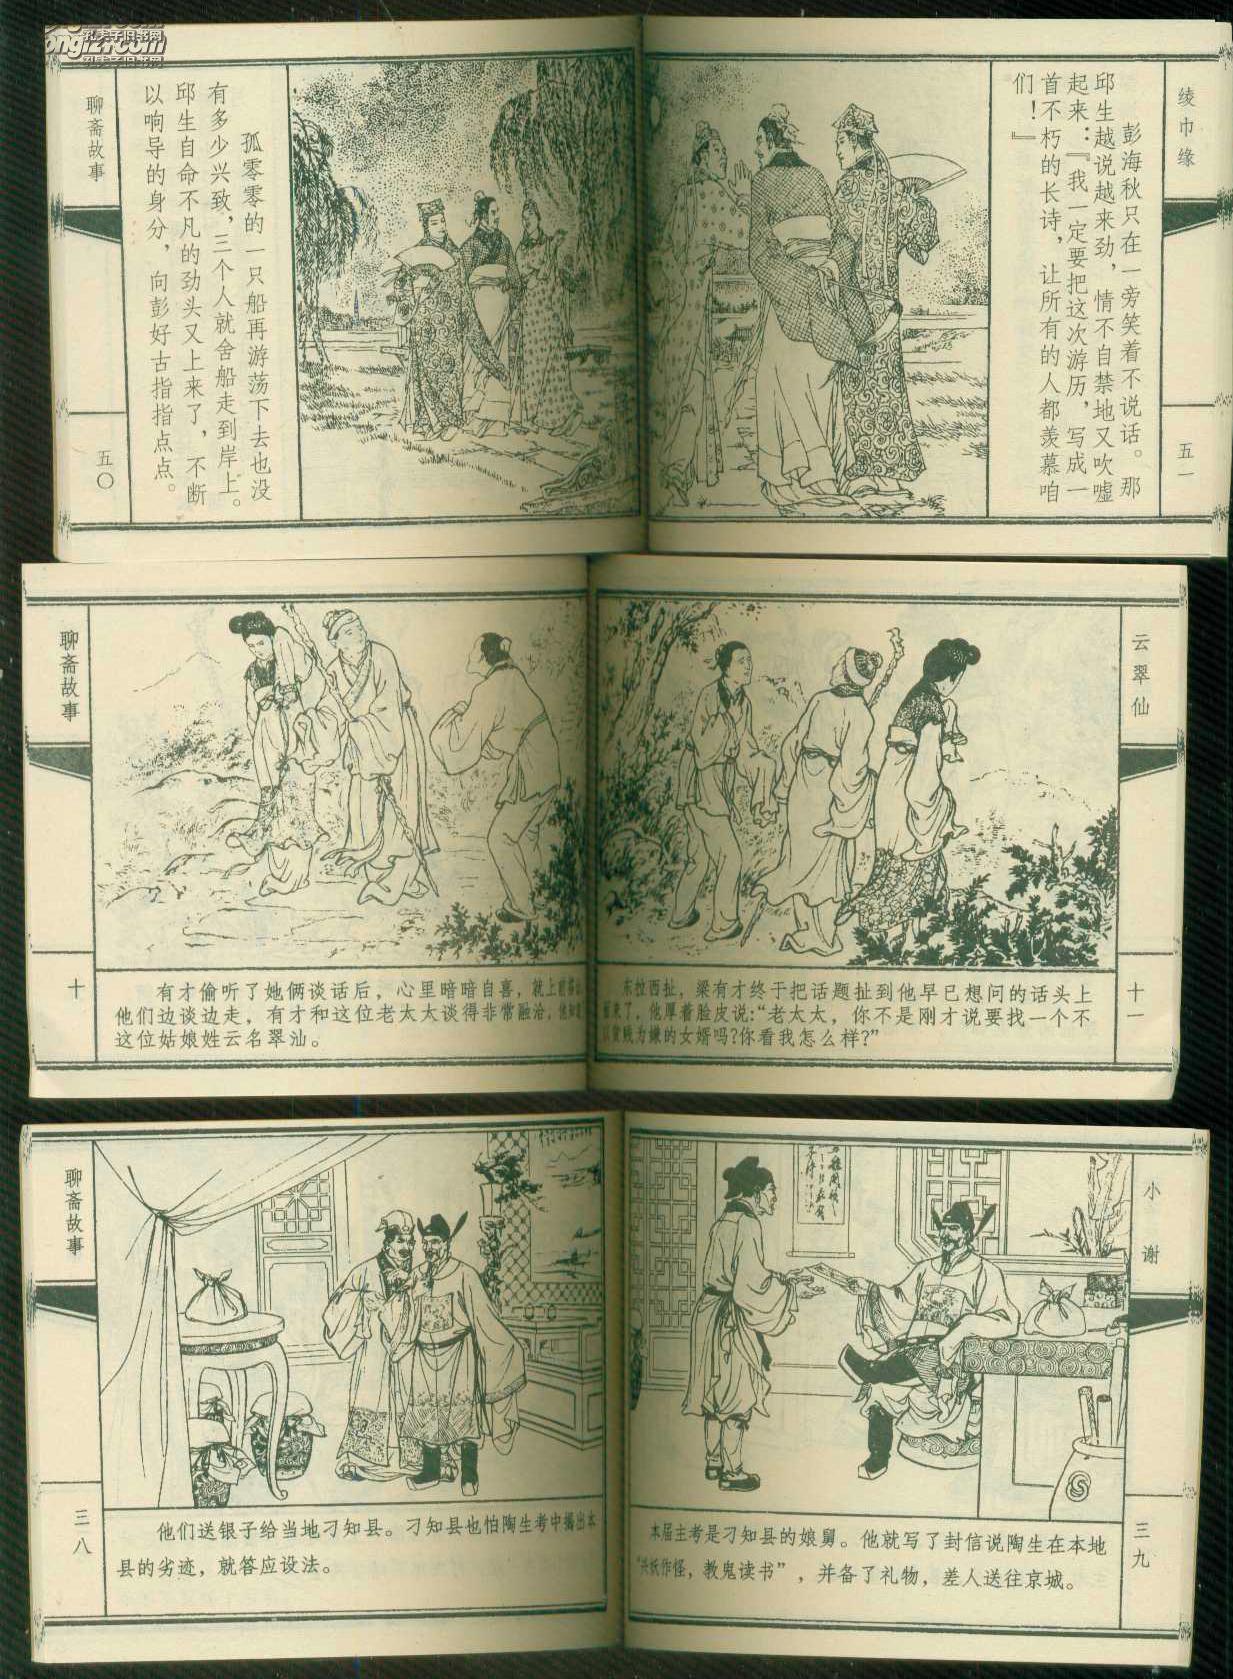 孔夫子旧书网
聊斋故事
孤零零的一只船再游荡下去也没
有多少兴致，三个人就舍船走到岸上。
邱生自命不凡的劲头又上来了，不断
以响导的身分，向彭好古指指点点。
五〇
绫巾缘
彭海秋只在一旁笑着不说话。那
邱生越说越来劲，情不自禁地又吹嘘
起来：『我一定要把这次游历，写成一
首不朽的长诗，让所有的人都羡慕咱
们！』
五一
聊斋故事
十
有才偷听了她俩谈话后，心里暗暗自喜，就上前
他们边谈边走，有才和这位老太太谈得非常融洽，他知道
这位姑娘姓云名翠汕。
云翠仙
十一
东拉西扯，梁有才终于把话题扯到他早已想问的话头上
面来了，他厚着脸皮说：“老太太，你不是刚才说要找一个不
以贫贱为嫌的女婿吗？你看我怎么样？”
聊斋故事
三八
他们送银子给当地刁知县。刁知县也怕陶生考中揭出本
县的劣迹，就答应设法。
小谢
三九
本届主考是刁知县的娘舅。他就写了封信说陶生在本地
“兴妖作怪，教鬼读书”，并备了礼物，差人送往京城。